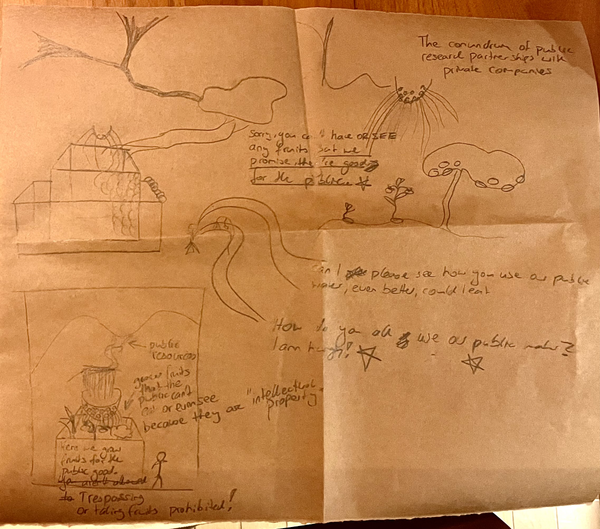 The conundrum of public
research partnerships with
private companies
Sorry, you can't have OR SEE
any fruits but we
promise they're good
for the public
Can I please see how you use our public
water, even better, could I eat
How do you all use our public water?
I am hungry!
public
resources
grown fruits
that the
public can't
eat or even see
because they are "intellectual
property"
Here we grow
fruits for the
public good.
Trespassing
or taking fruits prohibited!